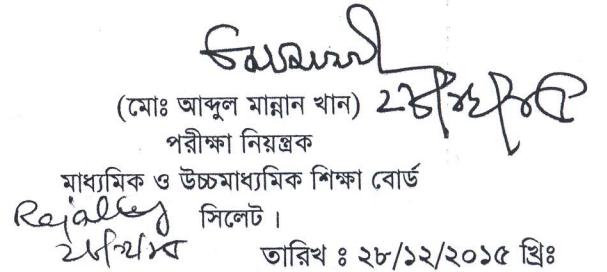 (মোঃ আব্দুল মান্নান খান) ২৮/১২/১৫
পরীক্ষা নিয়ন্ত্রক
মাধ্যমিক ও উচ্চমাধ্যমিক শিক্ষা বোর্ড
সিলেট ।
তারিখ ঃ ২৮/১২/২০১৫ খ্রিঃ